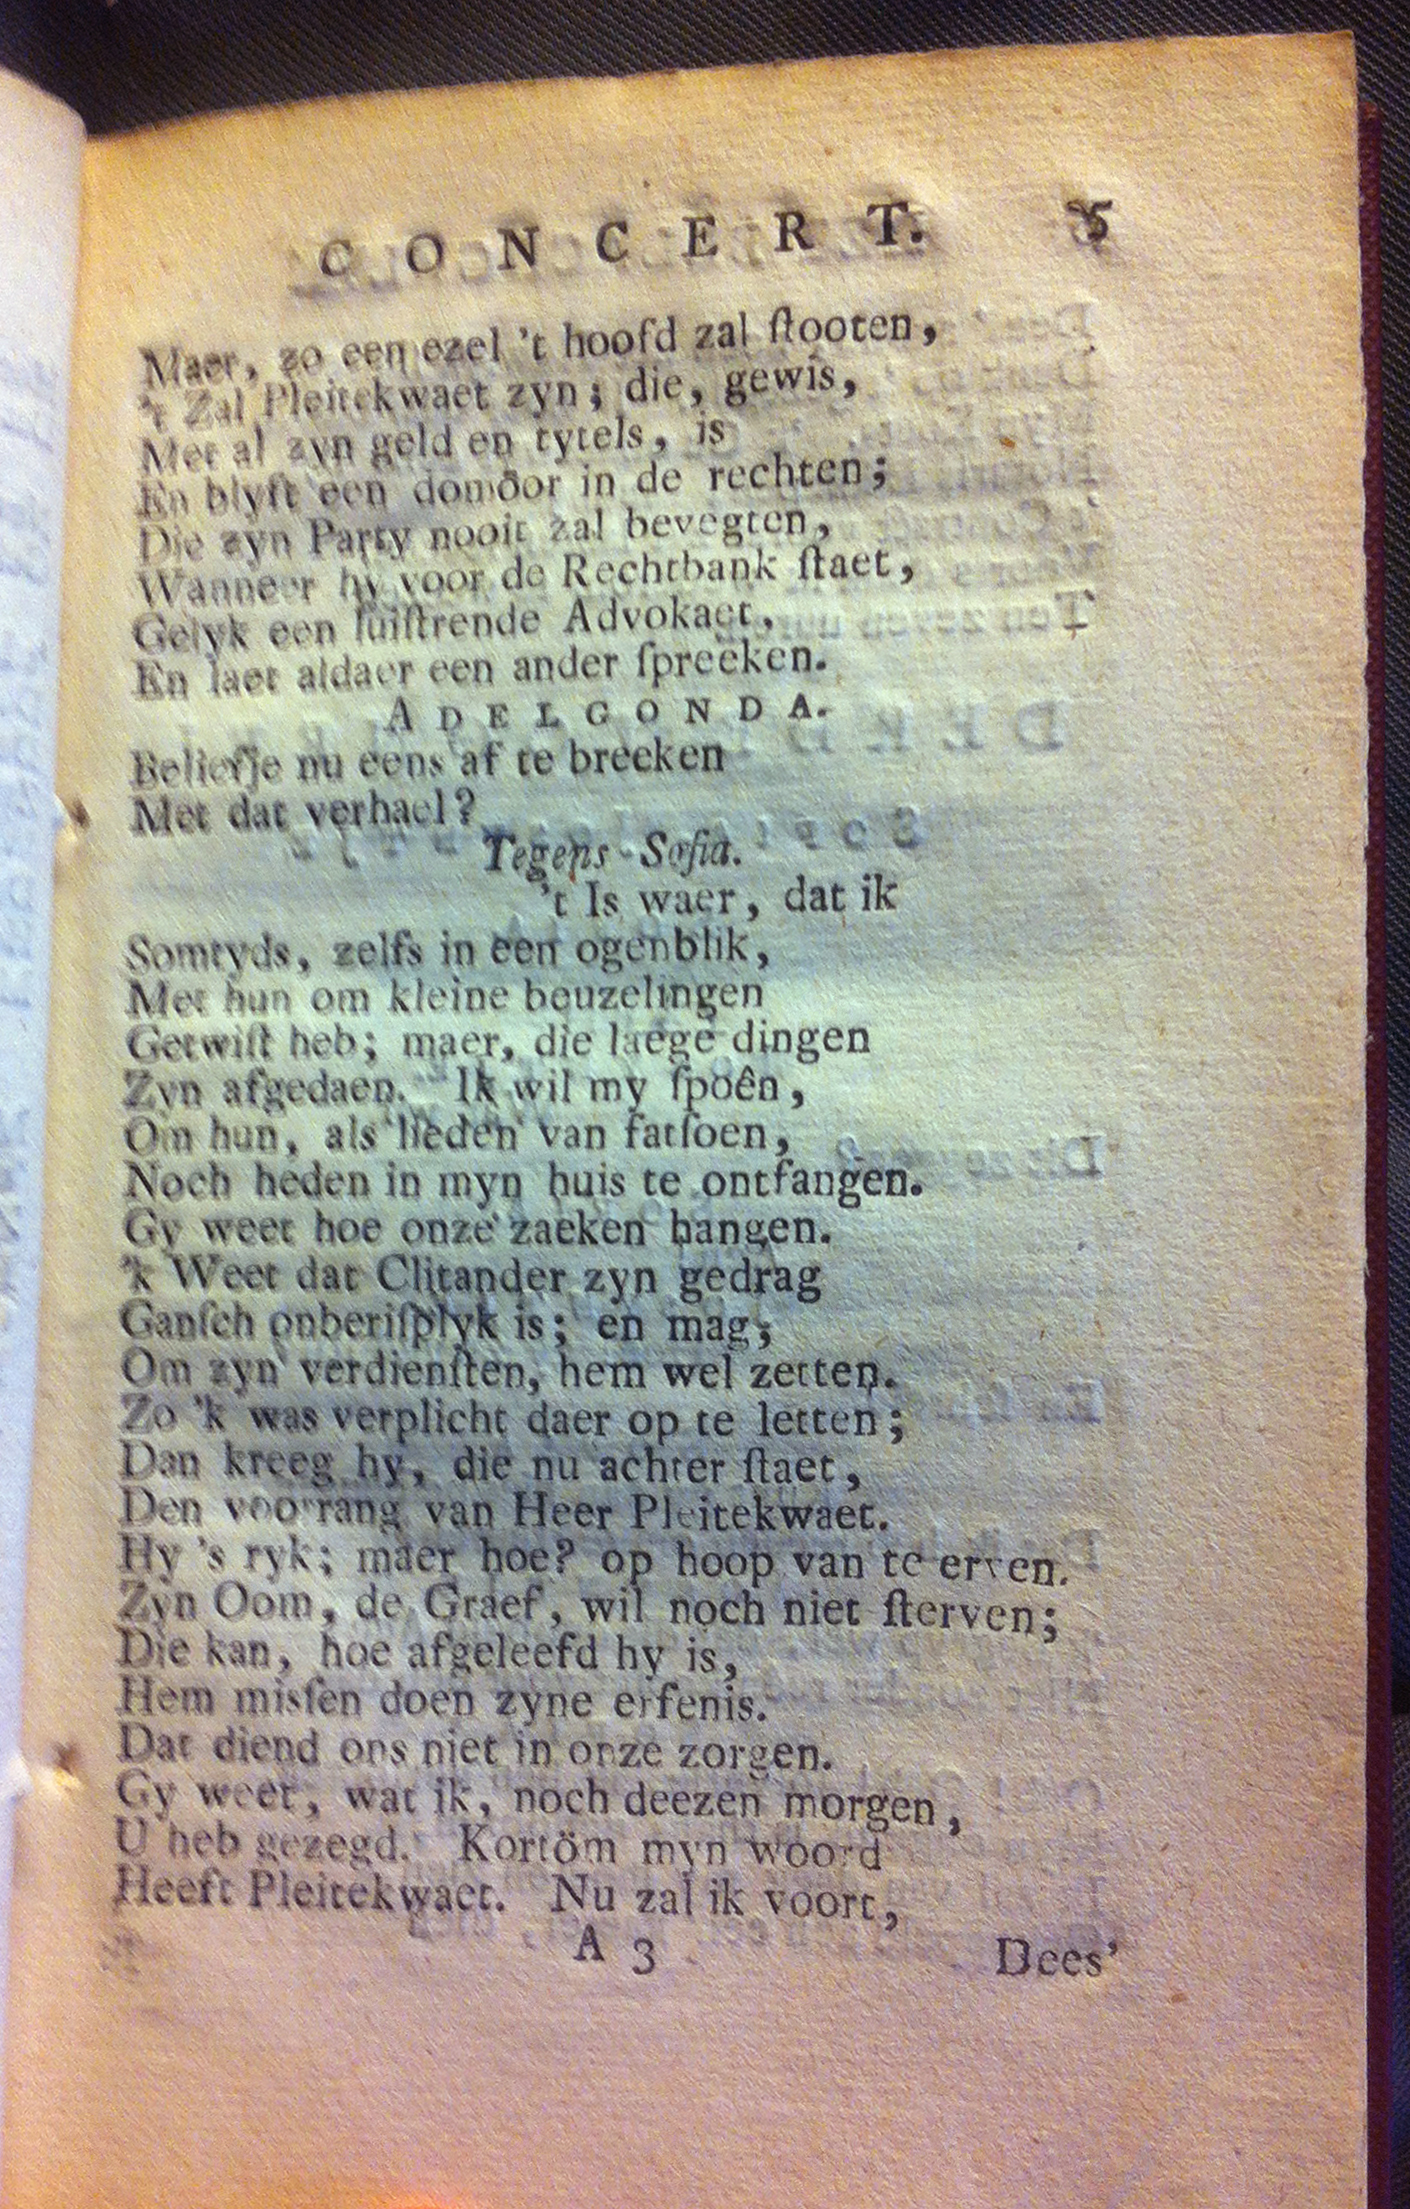 CONCERT. 5
Maer, zo een ezel 't hoofd zal ſtooten,
't Zal Pleitekwaet zyn; die, gewis,
Met al zyn geld en tytels, is
En blyft een domöor in de rechten;
Die zyn Party nooit zal bevegten,
Wanneer hy voor de Rechtbank ſtaet,
Gelyk een luiſtrende Advokaet,
En laet aldaer een ander ſpreeken.
ADELGONDA.
Beliefje nu eens af te breeken
Met dat verhael?
Tegens Sofia.
't Is waer, dat ik
Somtyds, zelfs in een ogenblik,
Met hun om kleine beuzelingen
Getwiſt heb; maer, die laege dingen
Zyn afgedaen. Ik wil my ſpoên,
Om hun, als lieden van fatſoen,
Noch heden in myn huis te ontfangen.
Gy weet hoe onze zaeken hangen.
'k Weet dat Clitander zyn gedrag
Ganſch onberiſplyk is; en mag,
Om zyn verdienſten, hem wel zetten.
Zo 'k was verplicht daer op te letten;
Dan kreeg hy, die nu achter ſtaet,
Den voorrang van Heer Pleitekwaet.
Hy 's ryk; maer hoe? op hoop van te erven.
Zyn Oom, de Graef, wil noch niet ſterven;
Die kan, hoe afgeleefd hy is,
Hem misſen doen zyne erfenis.
Dat diend ons niet in onze zorgen.
Gy weet, wat ik, noch deezen morgen,
U heb gezegd. Kortöm myn woord
Heeft Pleitekwaet. Nu zal ik voort,
A 3 Dees'